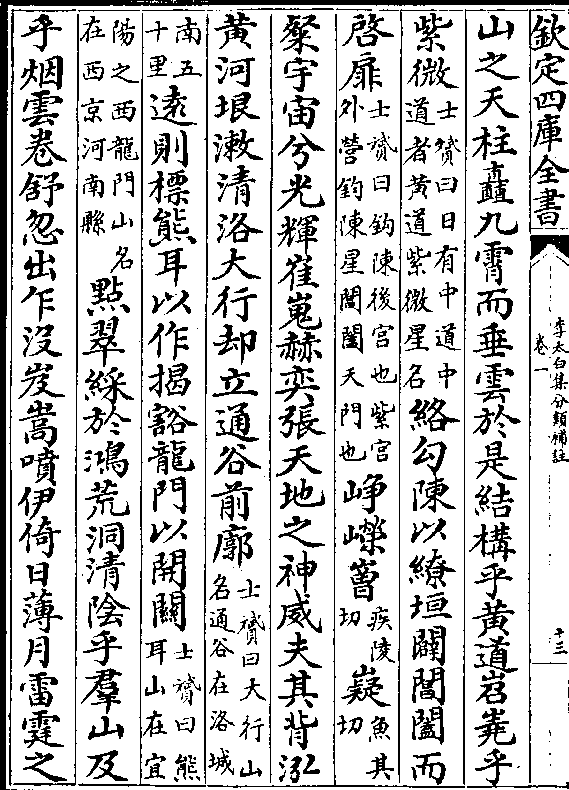 欽定四庫全書
李太白集分類補註
卷一
十三
山之天柱矗九霄而垂雲於是結構乎黃道岧嶤乎
紫微士贇曰日有中道中道者黃道紫微星名絡勾陳以繚垣闢閶闔而
啓扉士贇曰鈎陳後宮也紫宮外營鈎陳星閶闔天門也崢嶸嶒疾陵切嶷魚其切
粲宇宙兮光輝崔嵬赫奕張天地之神威夫其背泓
黃河垠潄清洛大行却立通谷前廓士贇曰大行山名通谷在洛城
南五十里遠則標熊耳以作揭豁龍門以開關士贇曰熊耳山在宜
陽之西龍門山名在西京河南縣點翠綵於鴻荒洞清陰乎羣山及
乎烟雲卷舒忽出乍沒岌嵩噴伊倚日薄月雷霆之